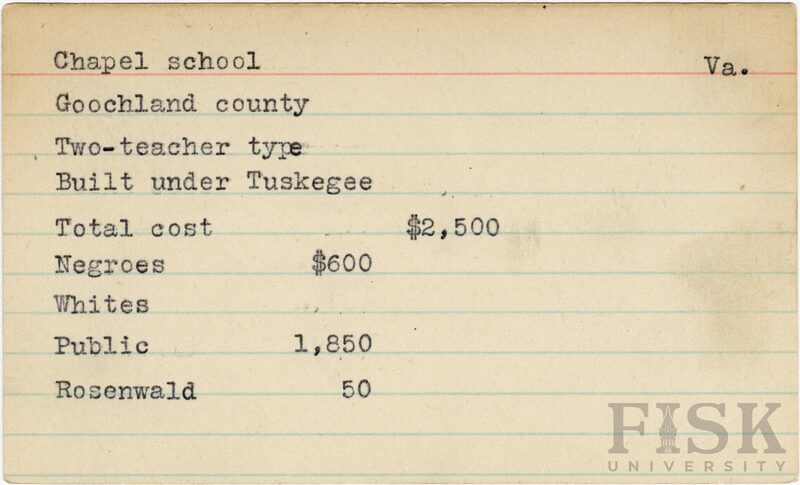 Chapel school Va.
Goochland county
Two-teacher type
Built under Tuskegee
Total cost $2,500
Negroes $600
Whites
Public 1,850
Rosenwald 50
FISK
UNIVERSITY